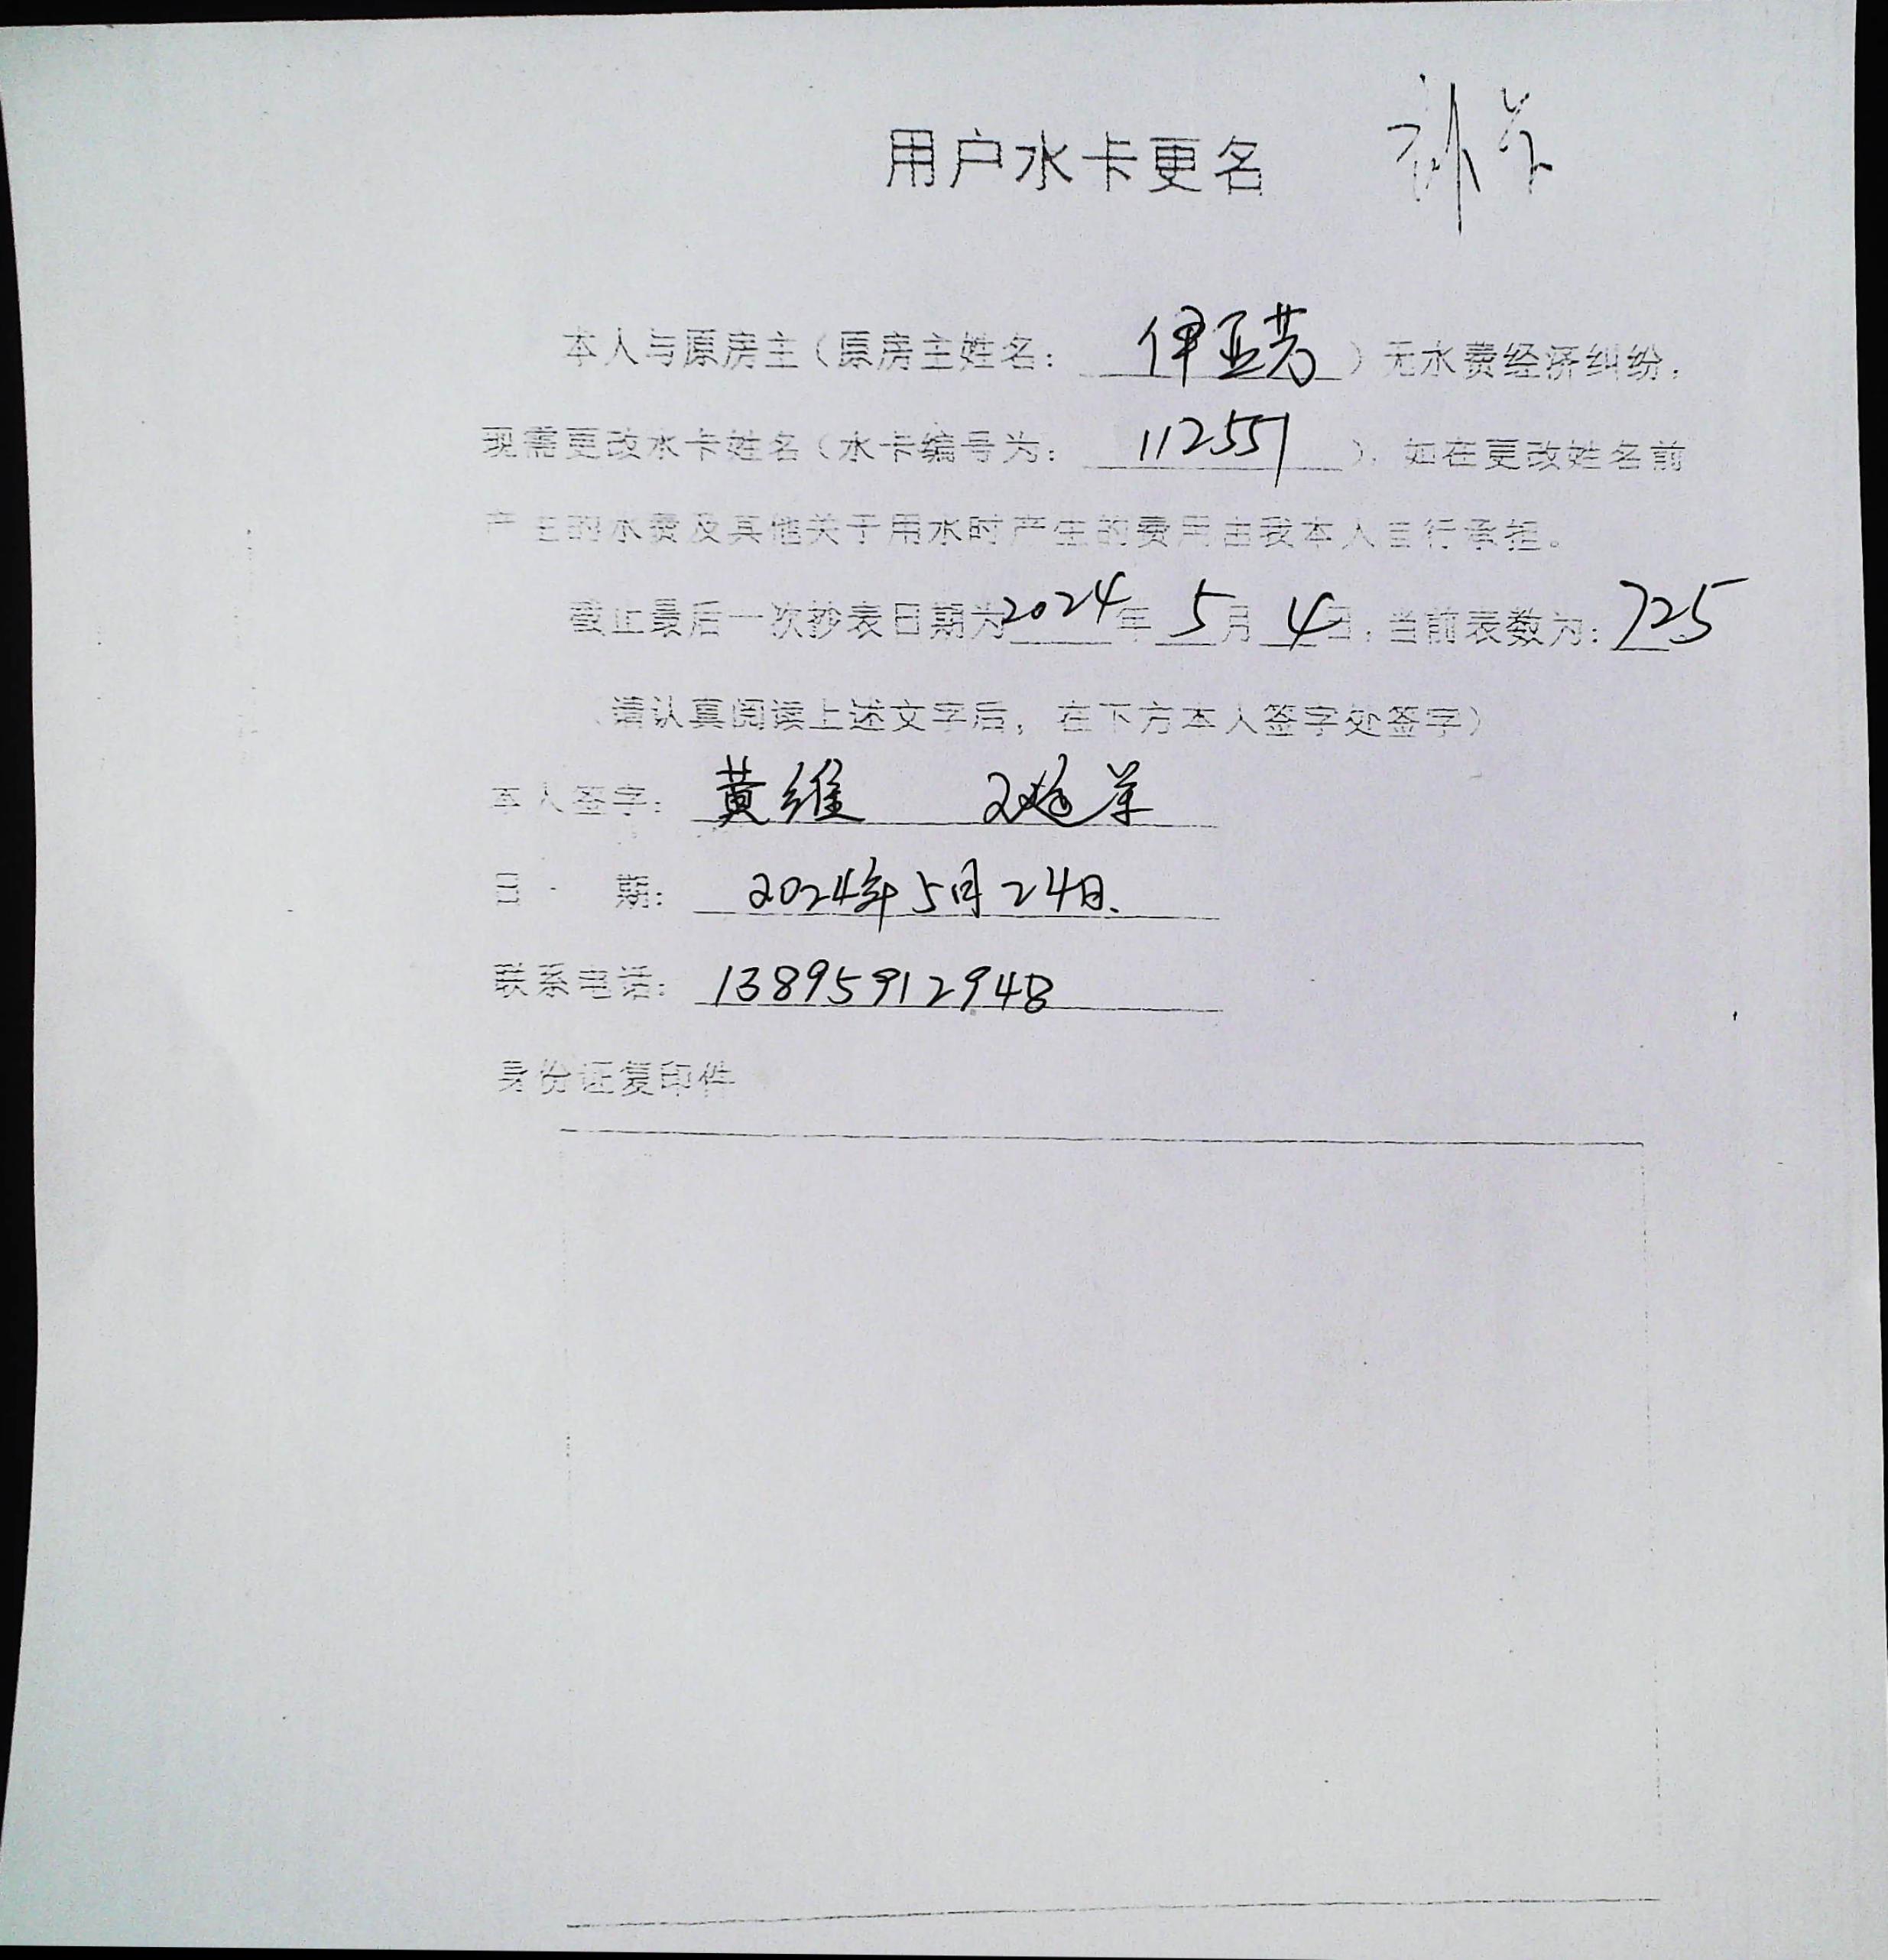 用户水卡更名
本人与原房主（原房主姓名：伊亚芳）无水费经济纠纷，
现需更改水卡姓名（水卡编号为：112551），如在更改姓名前
产生的水费及其他关于用水时产生的费用由我本人自行承担。
截止最后一次抄表日期为2024年5月4日，当前表数为：725
（请认真阅读上述文字后，在下方本人签字处签字）
本人签字：黄维
日期：2024年5月24日.
联系电话：13895912948
身份证复印件